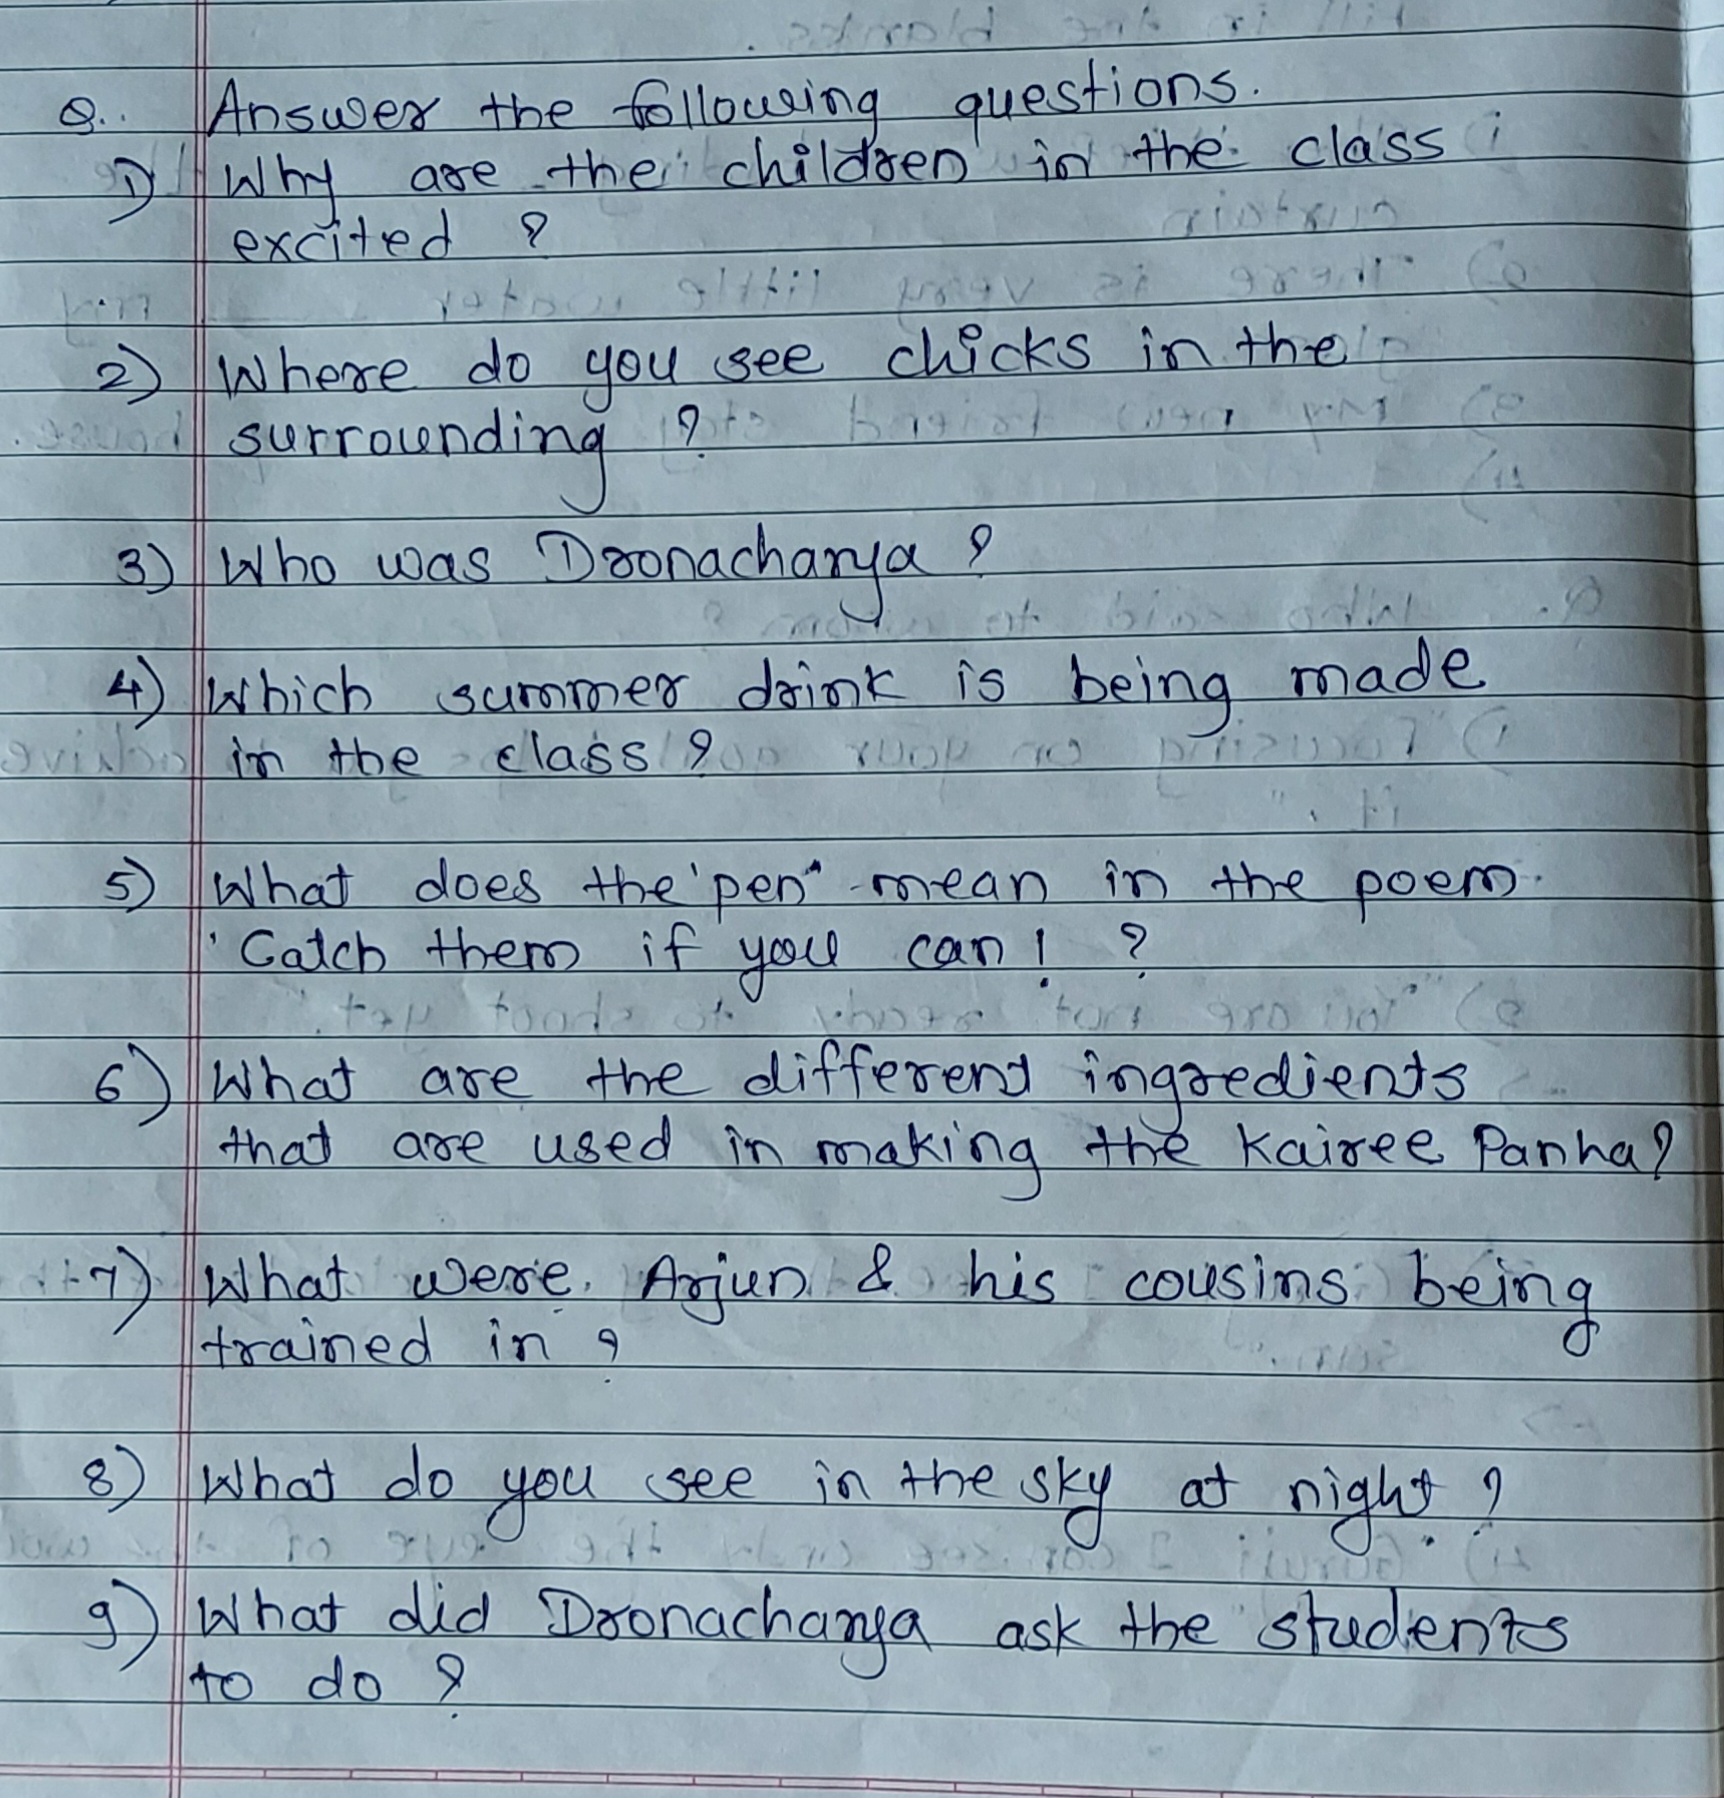 Q.. Answer the following questions.
1) Why are the children in the class
excited ?
2) Where do you see chicks in the
surrounding ?
3) Who was Dronacharya ?
4) Which summer drink is being made
in the class ?
5) What does the 'pen' mean in the poem
'Catch them if you can ! ?
6) What are the different ingredients
that are used in making the Kairee Panha ?
7) What were Arjun & his cousins being
trained in ?
8) What do you see in the sky at night ?
9) What did Dronacharya ask the students
to do ?